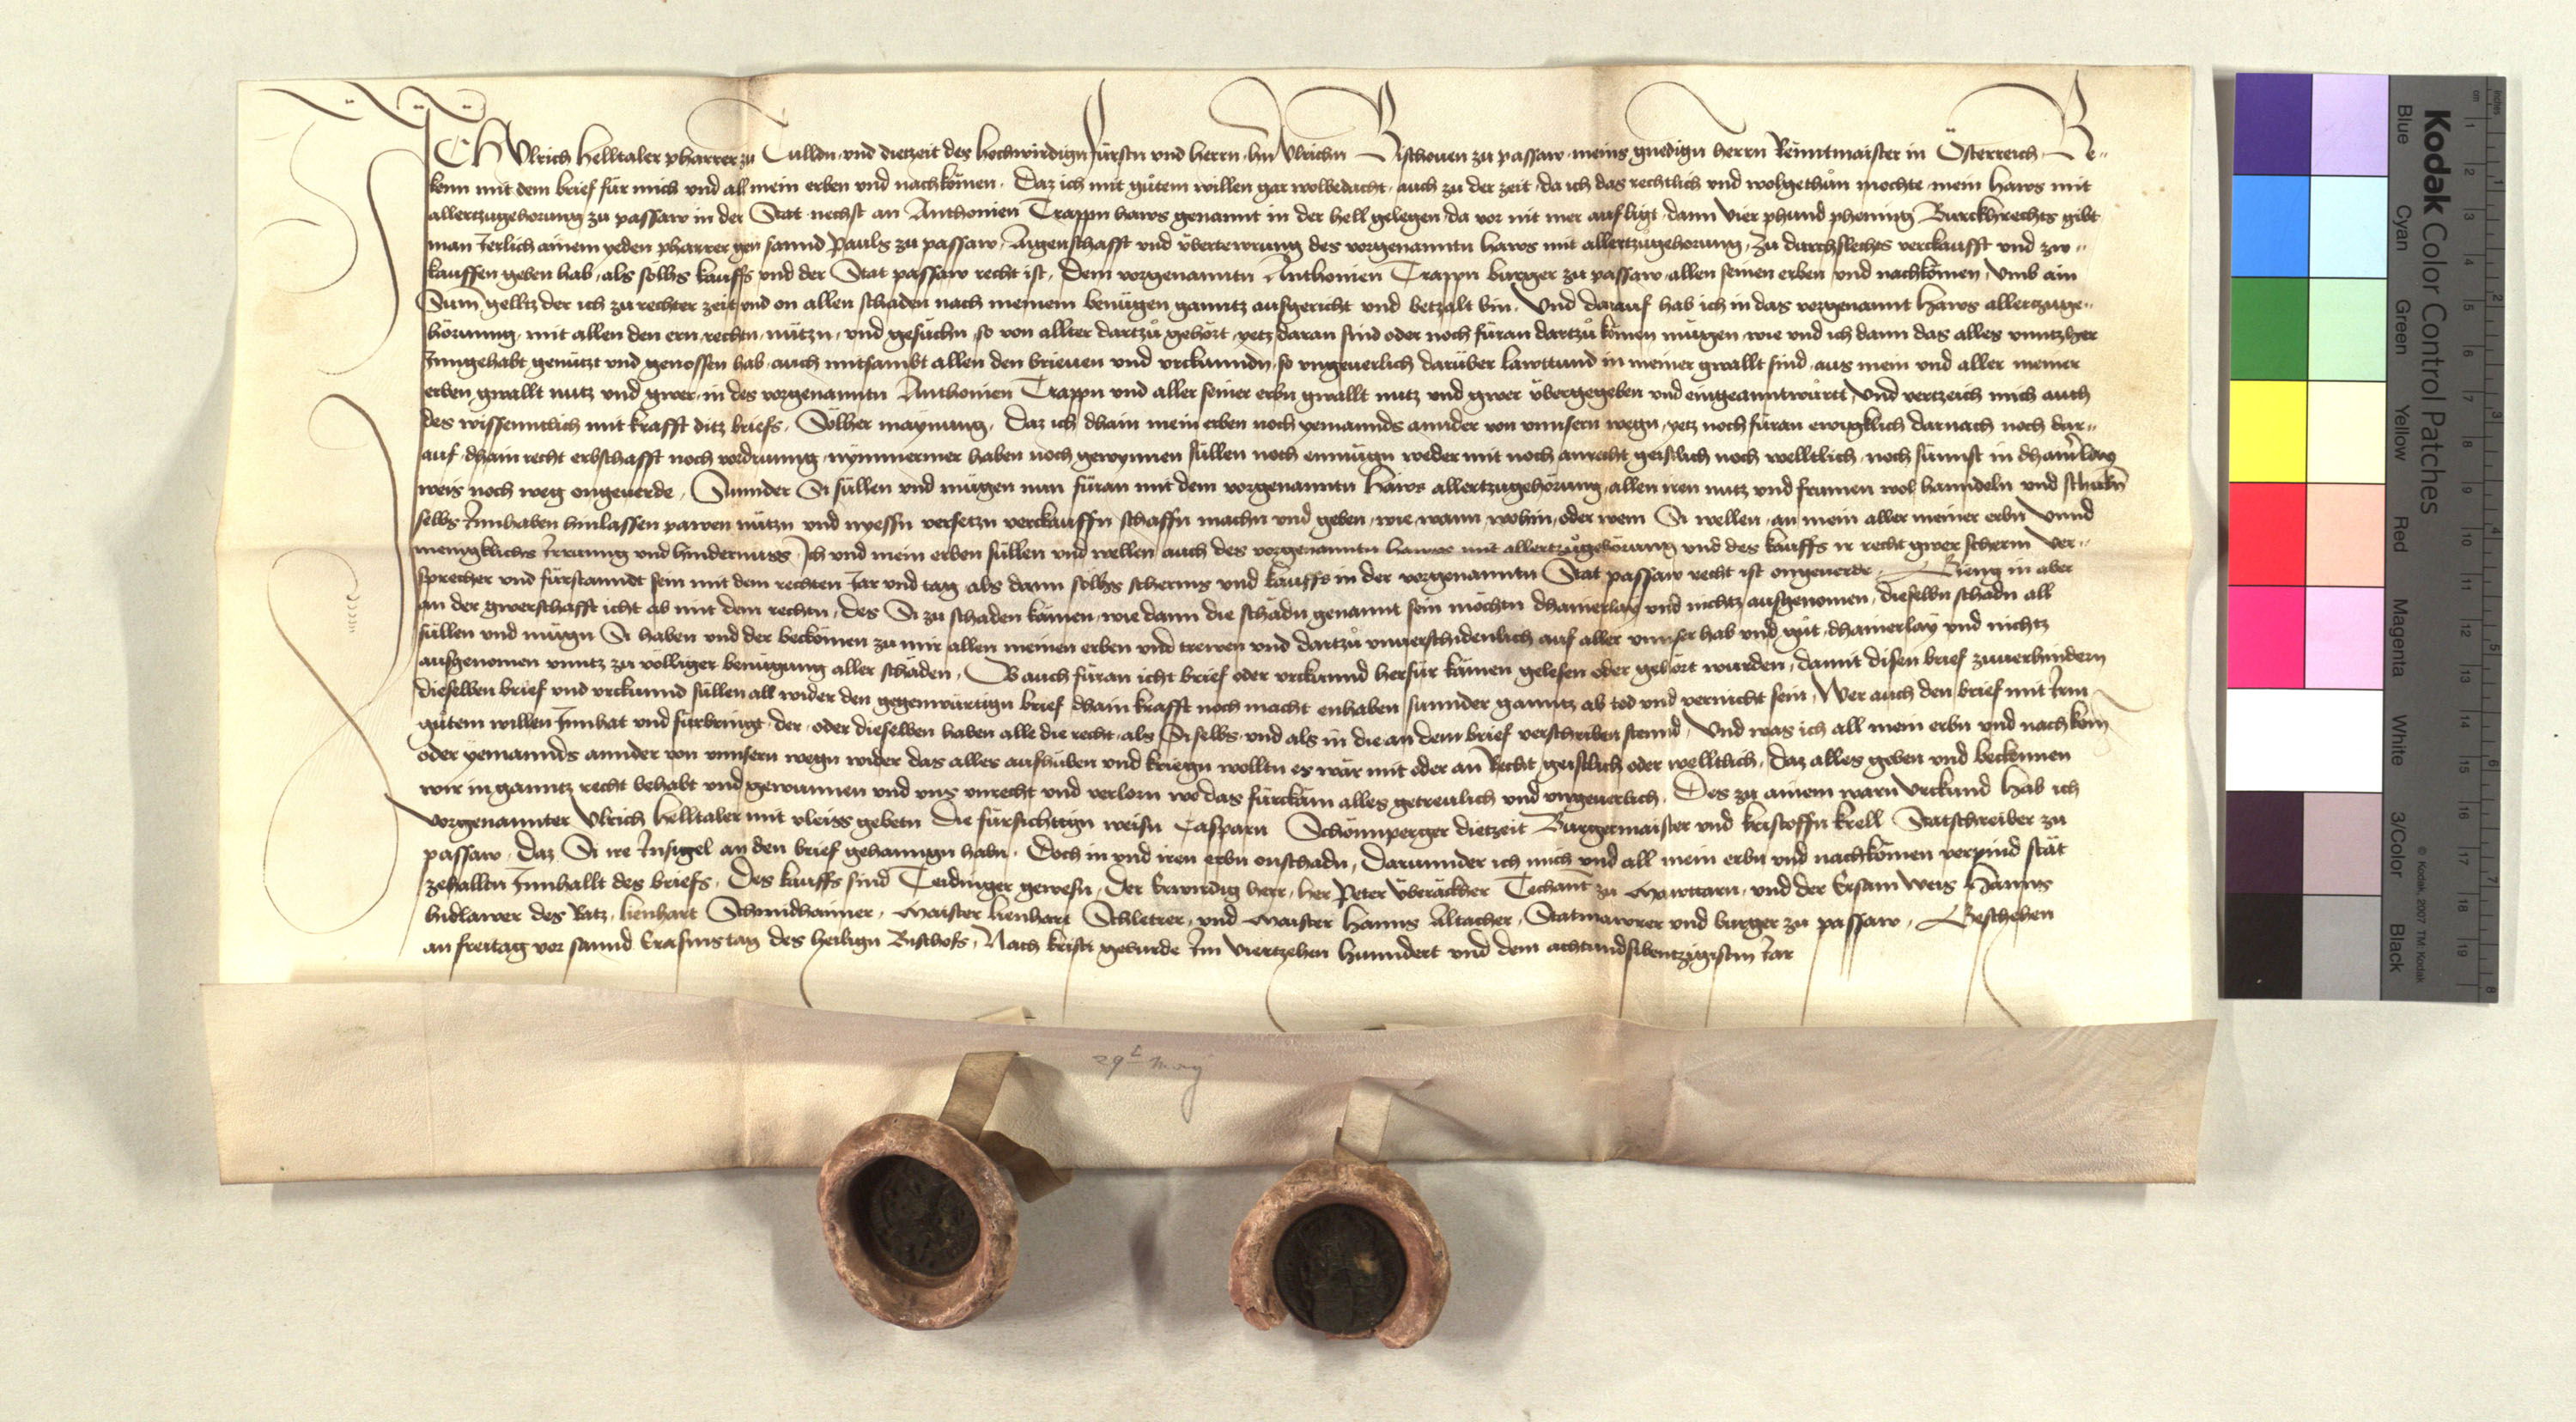 ICH Ulrich Helltaler pharrer zu Tulldn und dietzeit des hochwirdign Fürstn und herrn hern Ulrichn Bischouen zu passaw meins gnedign herrn Renntmaister in Österreich Be-
kenn mit dem brief für mich und all mein erben und nachkömen. Daz ich mit gütem willen gar wolbedacht auch zu der zeit da ich das rechtlich und wolgethün mochte mein haws mit
allertzugehorung zu passaw in der Stat nechst an Anthonien Trappn haws genannt in der hell gelegen da vor nit mer auf ligt dann vier phund phening Burckhrechts gibt
man Jerlich ainem yeden pharrer gen sannd Pauls zu passaw, Aigenschafft und übertewrung des vorgenanntn haws mit allertzugehorung, zu durchslechts verckaufft und zw-
kauffen geben hab, als sölhs kauffs und der Stat passaw recht ist, Dem vorgenanntn Anthonien Trappn burger zu passaw allen seinen erben und nachkömen, Umb ain
Sum gelltz der ich zu rechter zeit und on allen schaden nach meinem benügen ganntz ausgericht und betzalt bin. Und darauf hab ich in das vorgenannt haws allertzuge-
hörunng, mit allen den ern rechtn nützn, und gesuchn, so von allter dartzü gehört, yetz daran sind oder noch füran dartzü kömen mügen wie und ich dann das alles unntzher
Inngehabt genützt und genossen hab, auch mitsambt allen den brieuen und urckunndn, so ungeuerlich darüber lawttund in meiner gwallt sind, aus mein und aller meiner
erben gwallt nutz und gwer, in des vorgenanntn Anthonien Trappn und aller seiner erbn gwallt nutz und gwer übergegeben und eingeanntwürtt, Und vertzeich mich auch
des wissenntlich mit krafft ditz briefs. Sölher maynung, Daz ich dhain mein erben noch yemannds annder von unnsern wegn, yetz noch füran ewigklich darnach noch dar-
auf dhain recht erbschafft noch vordrunng nymmermer haben noch gewynnen süllen noch enmügn weder mit noch anrecht geistlich noch welltlich, noch sünnst in dhainlay
weis noch weg ongeuerde, Sunnder Si süllen und mügen nun füran mit dem vorgenanntn haws allertzugehörung, allen iren nutz und frumen wol hanndeln und schickn
selbs Innhaben hinlassen pawen nützn und nyessn versetzn verckauffn schaffn machn und geben, wie wann wohin, oder wem Si wellen, an mein aller meiner erbn unnd
menigklichs Irrunng und hindernuss, Ich und mein erben süllen und wellen auch des vorgenanntn hawss mit allertzugehörung und des kauffs ir recht gwer scherm ver-
sprecher und fürstanndt sein mit dem rechten Jar und tag als dann sölhs scherms und kauffs in der vorgenanntn Stat passaw recht ist ongeuerde, Gieng in aber
an der gwerschafft icht ab mit dem rechtn, des Si zu schaden kämen, wie dann die schädn genannt sein möchtn dhainerlay und nichtz ausgenomen, dieselbn schadn all
süllen und mügn Si haben und der beckömen zu mir allen meinen erben und trewen und dartzü unuerschidenlich auf aller unnser hab und güt, dhainerlay und nichtz
ausgenomen unntz zu völliger benügung aller schäden, Ob auch füran icht brief oder urckunnd herfür kämen gelesen oder gehört wurden, damit disen brief zuuerhindern
dieselben brief und urckunnd süllen all wider den gegenwürtign brief dhain krafft noch macht enhaben sunnder ganntz ab tod und vernicht sein, Wer auch den brief mit Irm
gütem willen Innhat und fürbringt, der, oder dieselben haben alle die recht, als Si selbs, und als in die an dem brief verschriben stennd, Und was ich all mein erbn und nachköm
oder yemannds annder von unnsern wegn wider das alles aufhüben und kriegn wolltn es wär mit oder an Recht, geistlich oder welltlich, Daz alles geben und beckennen
wir in ganntz recht behabt und gewunnen und uns unrecht und verlorn wo das fürckäm alles getreulich und ungeuerlich. Des zu ainem warn Urckund hab ich
vorgenannter Ulrich helltaler mit vleiss gebetn Die fürsichtign weisn Casparn Schönnperger dietzeit Burgermaister und kristoffn krell Statschreiber zu
passaw, Daz Si ire Innsigel an den brief gehanngn habn. Doch in und iren erbn onschadn, Darunnder ich mich und all mein erbn und nachkömen verpind stät
zehalltn Innhallt des briefs, Des kauffs sind Teidinger gewesn, Der Erwirdig herr, her Peter Überäckher Techant zu Mawttarn, und der Ersam weis Hanns
hidlawer des Ratz, lienhart Schmidhaimer, Maister lienhart Schletrer, und Maister hanns Altacher, Statmawrer und burger zu passaw, Geschehen
an freitag vor sannd Erasms tag des heilign Bischofs, Nach kristi geburde Im viertzehen hunndert und dem achtundsibentzigistm Jar
29t May
Kodak Color Control Patches
Blue Cyan Green Yellow Red Magenta White 3/Color Black
© Kodak, 2007 TM: Kodak
cm 1 2 3 4 5 6 7 8 9 10 11 12 13 14 15 16 17 18 19
inches 1 2 3 4 5 6 7 8